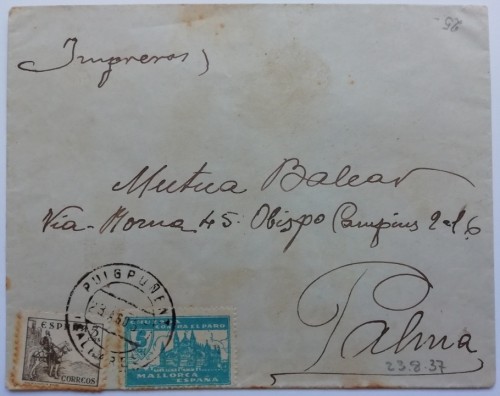 25-
Impresos
Mutua Balear
Via-Roma 45. Obispo Campins 2 al 6
Palma
23.8.37
PUIGPUÑENT
ESPAÑA
CORREOS
CONTRA EL PARO
MALLORCA
ESPAÑA